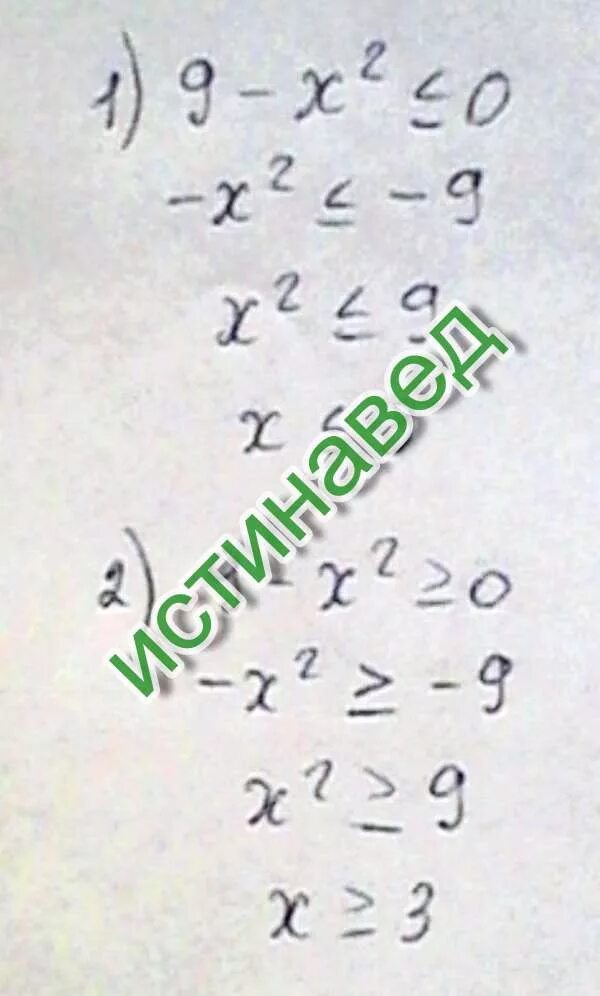 1) 9 - x² ≤ 0
-x² ≤ -9
x² ≤ 9
x ≤
2) - x² ≥ 0
-x² ≥ -9
x² ≥ 9
x ≥ 3
истинавед